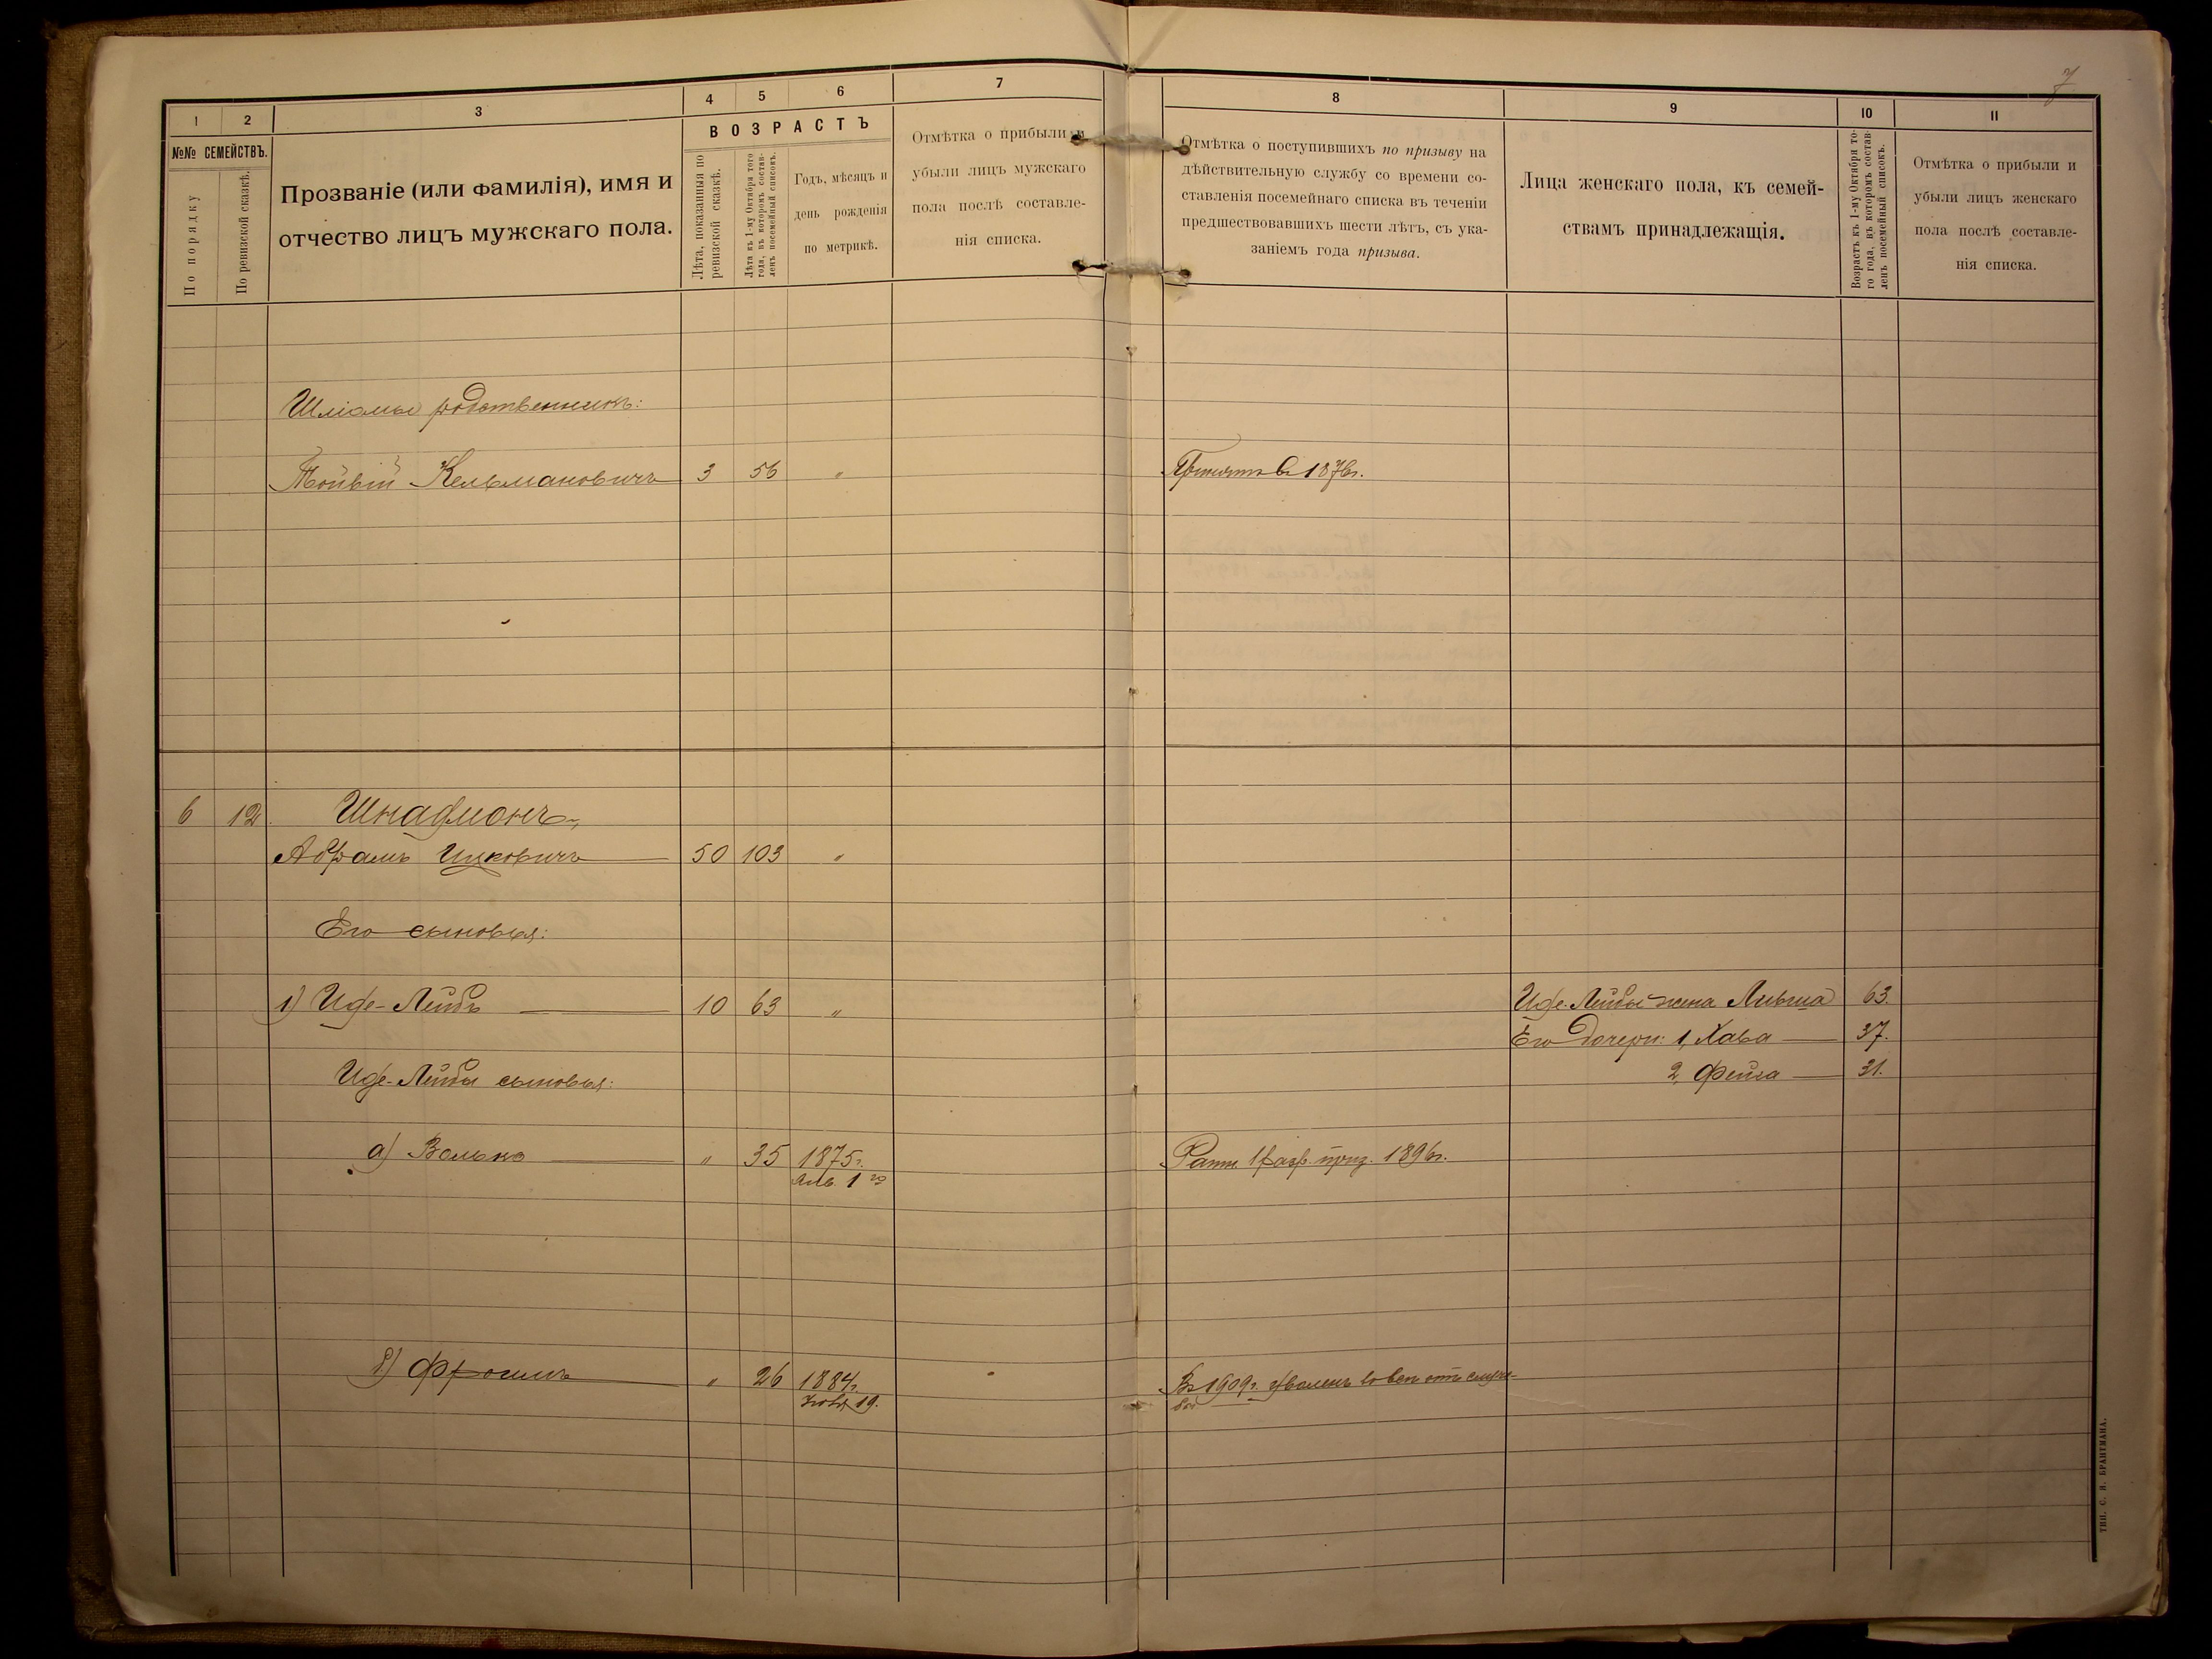 7
1
2
3
4
5
6
7
№№ СЕМЕЙСТВЪ.
По порядку
По ревизской сказкѣ.
Прозваніе (или фамилія), имя и
отчество лицъ мужскаго пола.
ВОЗРАСТЪ
Лѣта, показанныя по
ревизской сказкѣ.
Лѣта къ 1-му Октября того
года, въ которомъ состав-
ленъ посемейный списокъ.
Годъ, мѣсяцъ и
день рожденія
по метрикѣ.
Отмѣтка о прибыли и
убыли лицъ мужскаго
пола послѣ составле-
нія списка.
8
9
10
11
Отмѣтка о поступившихъ по призыву на
дѣйствительную службу со времени со-
ставленія посемейнаго списка въ теченіи
предшествовавшихъ шести лѣтъ, съ ука-
заніемъ года призыва.
Лица женскаго пола, къ семей-
ствамъ принадлежащія.
Возрастъ къ 1-му Октября то-
го года, въ которомъ состав-
ленъ посемейный списокъ.
Отмѣтка о прибыли и
убыли лицъ женскаго
пола послѣ составле-
нія списка.
Шліомы родственникъ:
Тойвій Кельмановичъ 3 56 " Принятъ въ 1876г.
6 12 Шнафмонъ,
Абрамъ Ицковичъ 50 103 "
Его сыновья:
1) Иде-Лейбъ 10 63 " Иде-Лейбы жена Лившa 63.
Его дочери: 1, Хава 37.
Иде-Лейбы сыновья: 2, Фейга 31.
а) Волько " 35 1875г. Ратн. 1 разр. приз. 1896г.
Янв. 1го
б) Фроимъ " 26 1884г. Въ 1909г. уволенъ вовсе отъ служ-
19. бы
ТИП. С. И. БРАНТМАНА.